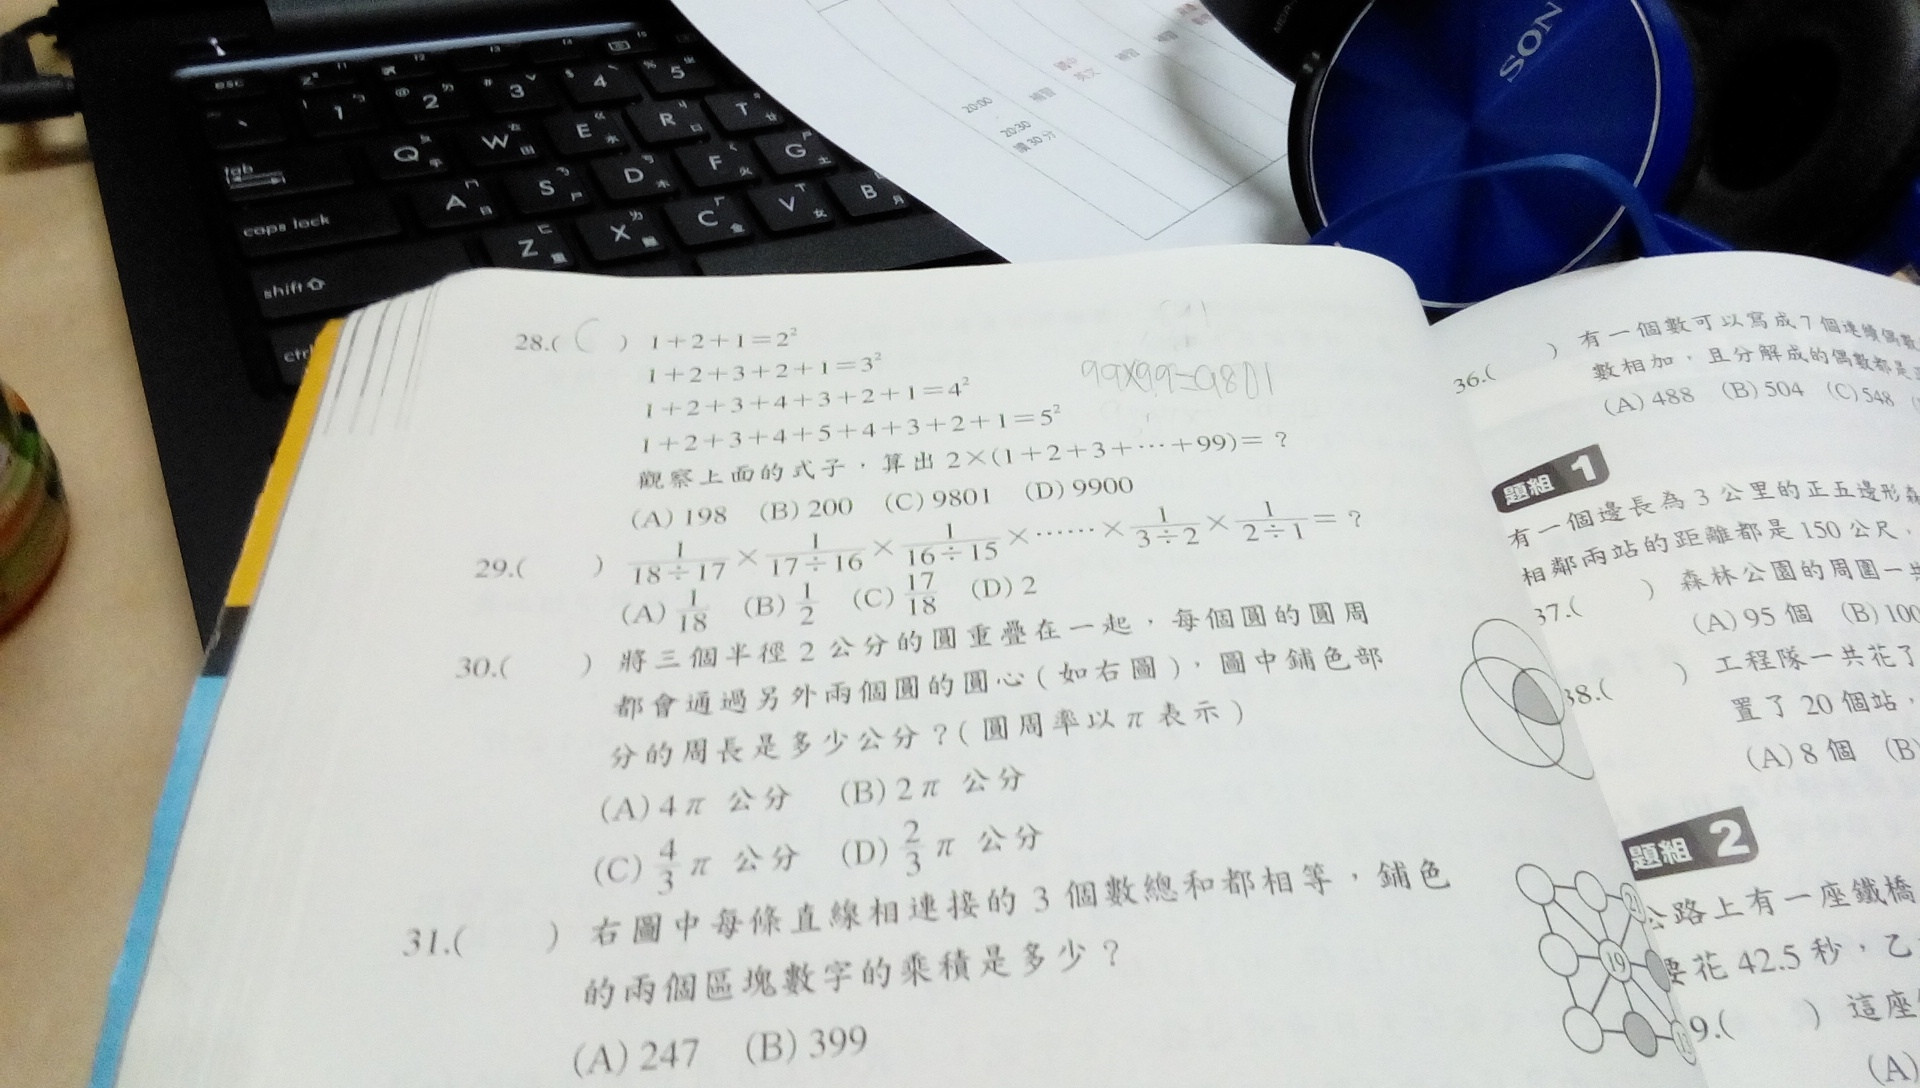 SON
20:00
20:30
讀30分
補習
國中
英文
補習
esc
1
2
3
4
5
tab
Q
W
E
R
T
caps lock
A
S
D
F
G
shift
Z
X
C
V
B
28.( C ) 1+2+1=2²
1+2+3+2+1=3²
1+2+3+4+3+2+1=4²
1+2+3+4+5+4+3+2+1=5²
觀察上面的式子，算出 2×(1+2+3+⋯+99)=？
(A) 198 (B) 200 (C) 9801 (D) 9900
99×99=9801
29.( ) 1/(18÷17) × 1/(17÷16) × 1/(16÷15) ×⋯⋯× 1/(3÷2) × 1/(2÷1) =？
(A) 1/18 (B) 1/2 (C) 17/18 (D) 2
30.( ) 將三個半徑 2 公分的圓重疊在一起，每個圓的圓周
都會通過另外兩個圓的圓心(如右圖)，圖中鋪色部
分的周長是多少公分？(圓周率以 π 表示)
(A) 4π 公分 (B) 2π 公分
(C) 4/3 π 公分 (D) 2/3 π 公分
31.( ) 右圖中每條直線相連接的 3 個數總和都相等，鋪色
的兩個區塊數字的乘積是多少？
(A) 247 (B) 399
21
19
36.( ) 有一個數可以寫成 7 個連續偶數
數相加，且分解成的偶數都是
(A) 488 (B) 504 (C) 548
題組 1
有一個邊長為 3 公里的正五邊形森
相鄰兩站的距離都是 150 公尺，
37.( ) 森林公園的周圍一共
(A) 95 個 (B) 100
38.( ) 工程隊一共花了
置了 20 個站，
(A) 8 個 (B)
題組 2
公路上有一座鐵橋
要花 42.5 秒，乙
9.( ) 這座
(A)